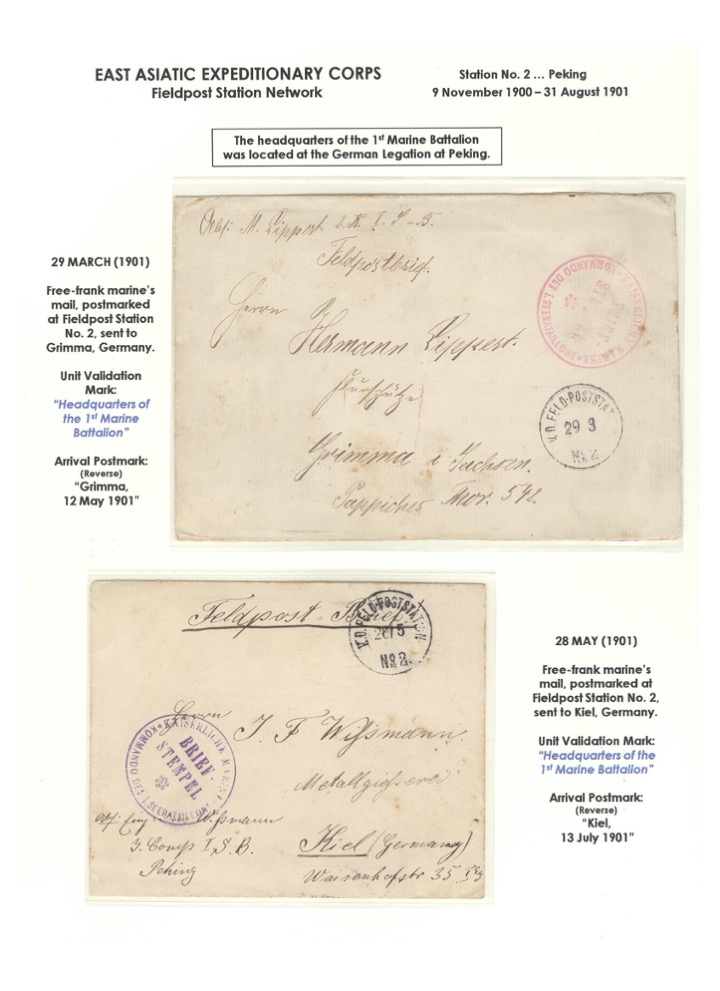 EAST ASIATIC EXPEDITIONARY CORPS
Fieldpost Station Network
Station No. 2 ... Peking
9 November 1900 – 31 August 1901
The headquarters of the 1st Marine Battalion
was located at the German Legation at Peking.
29 MARCH (1901)
Free-frank marine's
mail, postmarked
at Fieldpost Station
No. 2, sent to
Grimma, Germany.
Unit Validation
Mark:
"Headquarters of
the 1st Marine
Battalion"
Arrival Postmark:
(Reverse)
"Grimma,
12 May 1901"
Abs: M. Lippert 2. K. I. S-B.
Feldpostbrief.
Herrn
Hermann Lippert.
Grimma i Sachsen.
Pappisches Thor. 542.
KAISERLICHE MARINE
KOMMANDO DES I. SEEBATAILLONS
BRIEF-
STEMPEL
K.D. FELD-POSTSTATION
29 3
No 2.
Feldpost-Brief
K.D. FELD-POSTSTATION
5
No 2.
Herrn
J. F. Wißmann
Metallgießerei
Kiel (Germany)
Waisenhofstr 35 I Etg
KAISERLICHE MARINE
KOMMANDO DES I. SEEBATAILLONS
BRIEF-
STEMPEL
Wißmann
3. Comp I. S. B.
Peking
28 MAY (1901)
Free-frank marine's
mail, postmarked at
Fieldpost Station No. 2,
sent to Kiel, Germany.
Unit Validation Mark:
"Headquarters of the
1st Marine Battalion"
Arrival Postmark:
(Reverse)
"Kiel,
13 July 1901"